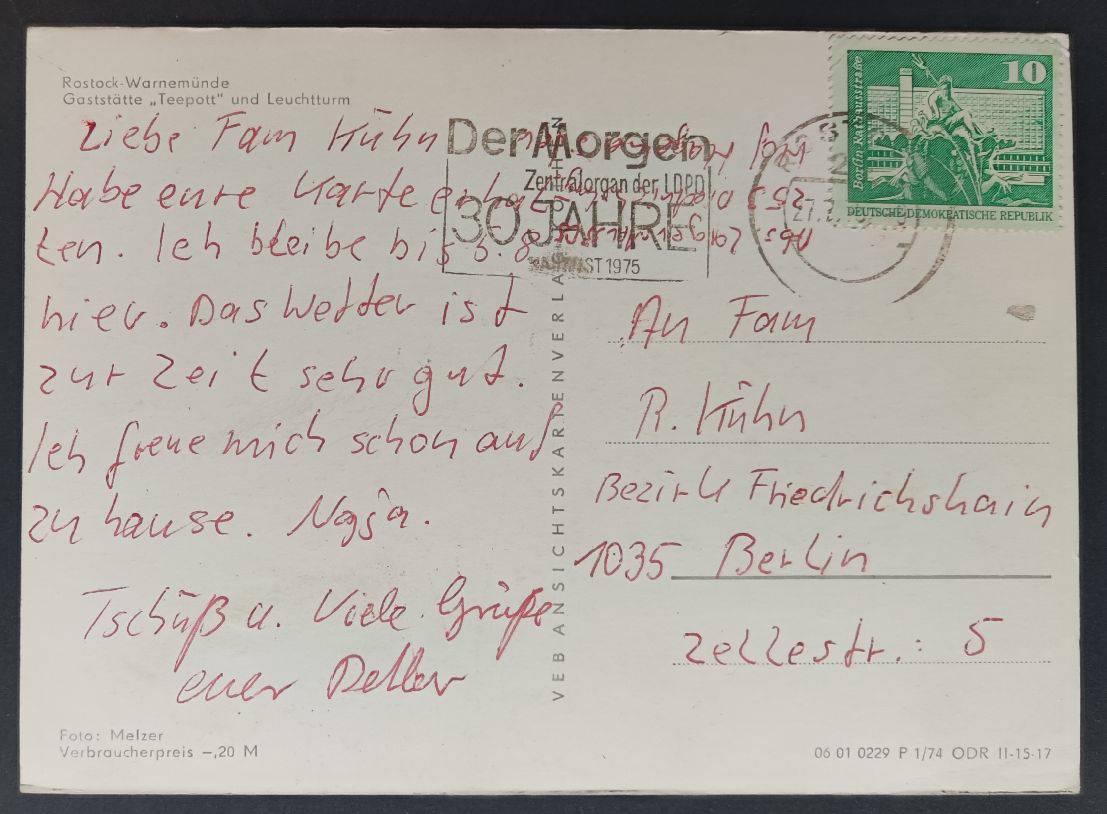 Rostock-Warnemünde
Gaststätte „Teepott" und Leuchtturm
Liebe Fam Kühn
Habe eure Karte erhal
ten. Ich bleibe bis 5.8
hier. Das Wetter ist
zur Zeit sehr gut.
Ich freue mich schon auf
zu hause. Nasja.
Tschüß u. Viele Grüße
euer Detlev
Foto: Melzer
Verbraucherpreis –,20 M
VEB ANSICHTSKARTENVERLAG
Der Morgen
Zentralorgan der LDPD
30 JAHRE
ST 1975
10
Berlin Rathausstraße
DEUTSCHE DEMOKRATISCHE REPUBLIK
An Fam
R. Kühn
Bezirk Friedrichshain
1035 Berlin
Zellestr.: 5
06 01 0229 P 1/74 ODR II-15-17